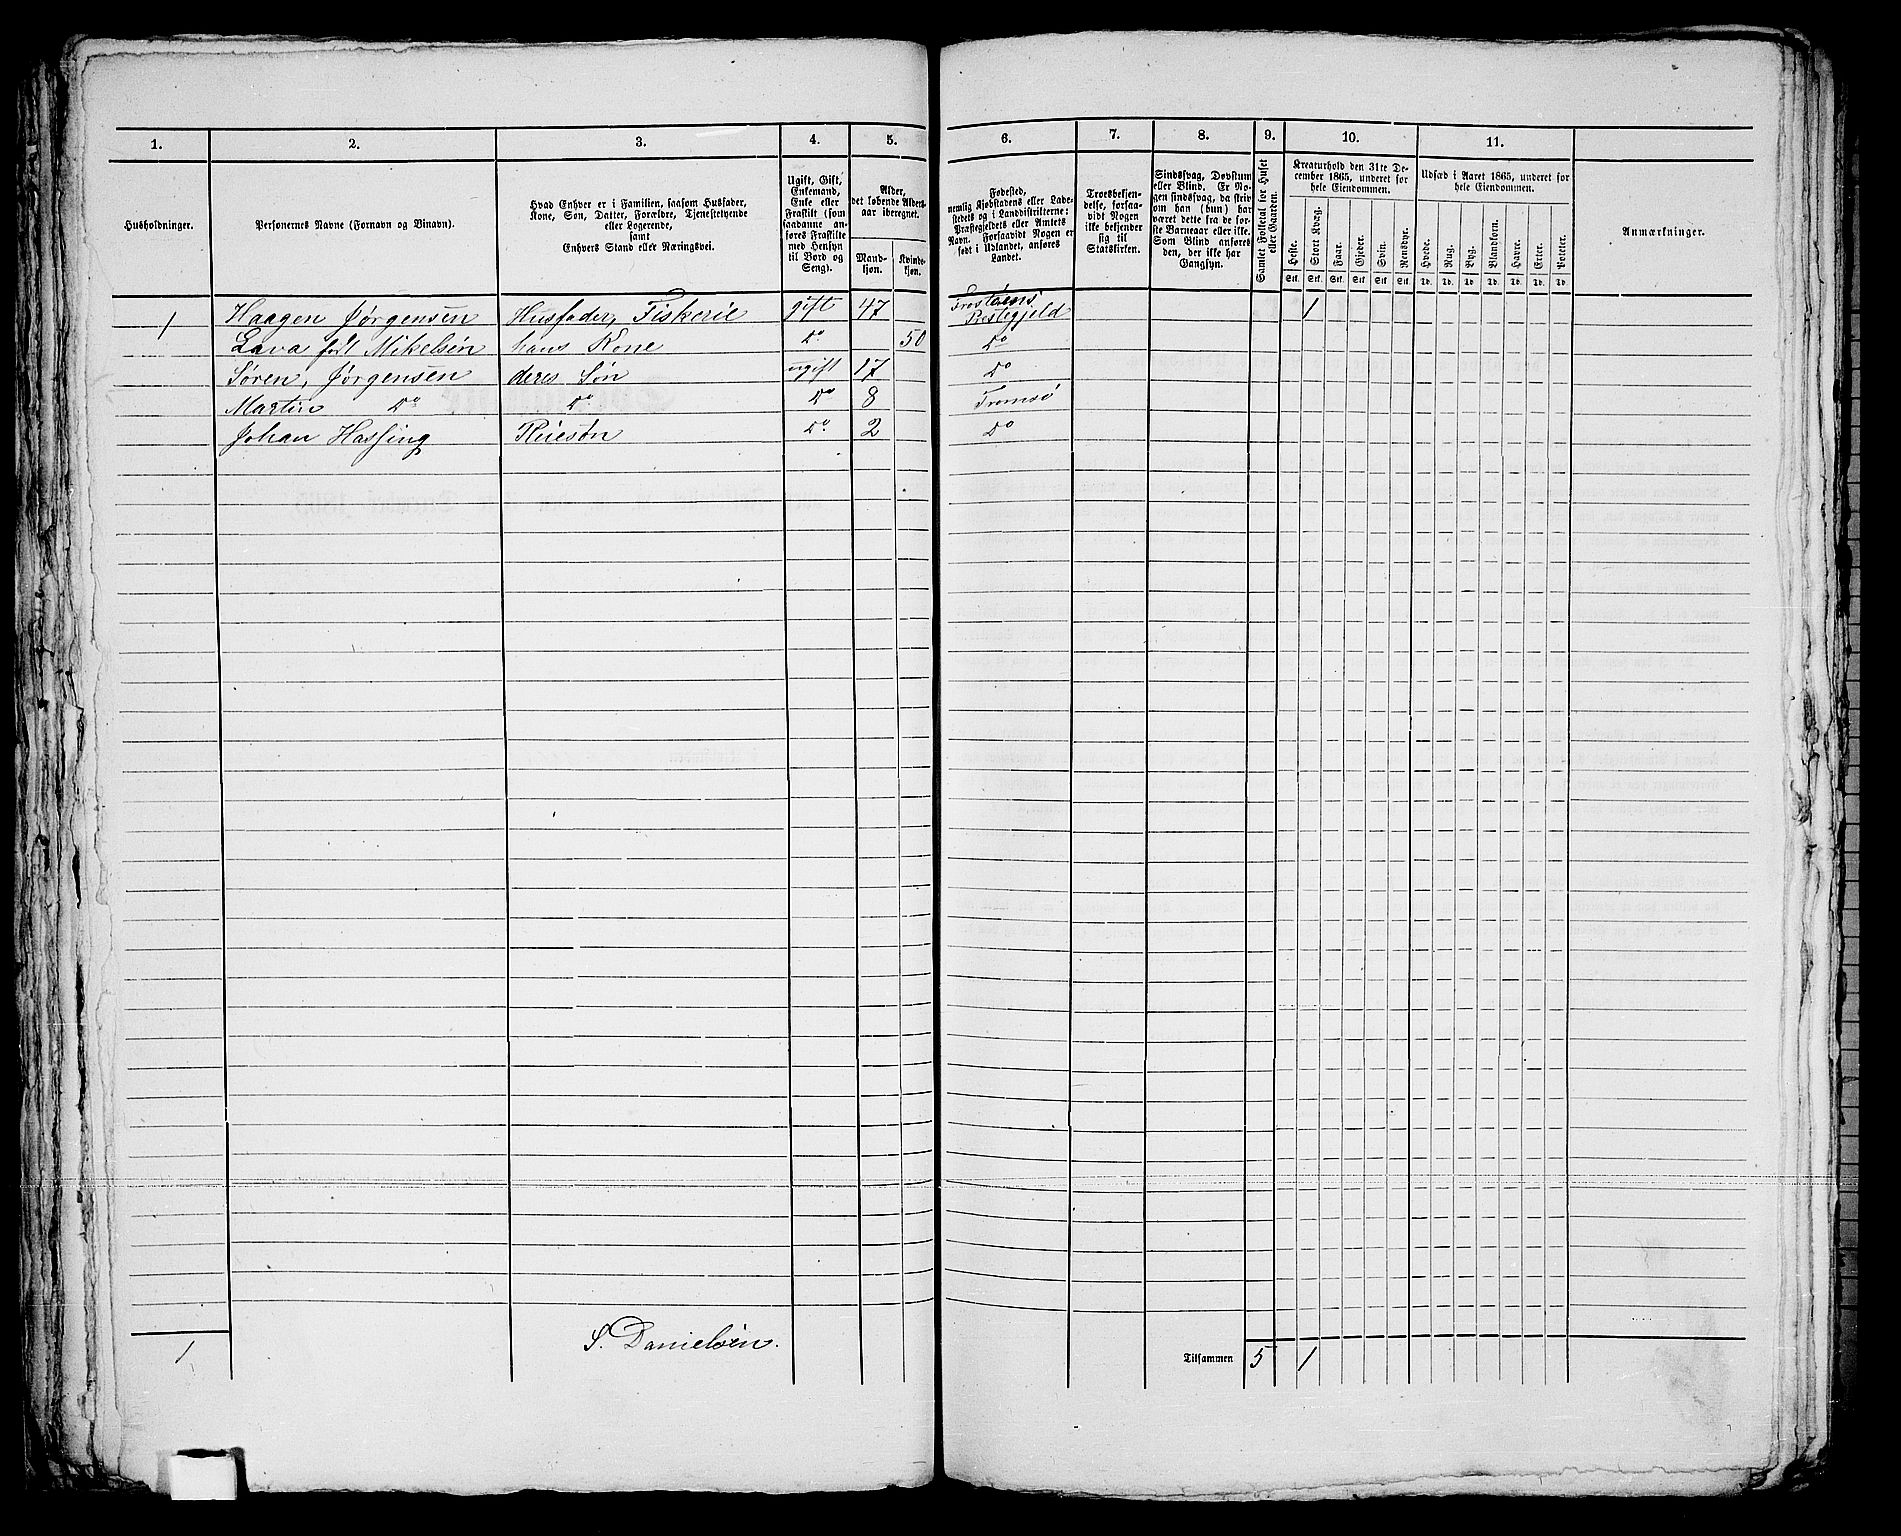 1. 2. 3. 4. 5. 6. 7. 8. 9. 10. 11.
Husholdninger.
Personernes Navne (Fornavn og Binavn).
Hvad Enhver er i Familien, saasom Husfader,
Kone, Søn, Datter, Forældre, Tjenestetyende
eller Logerende,
samt
Enhvers Stand eller Næringsvei.
Ugift, Gift,
Enkemand,
Enke eller
Fraskilt (som
saadanne an-
føres Fraskilte
med Hensyn
til Bord og
Seng).
Alder,
det løbende Alders-
aar iberegnet.
Mand-
kjøn.
Kvinde-
kjøn.
Fødested,
nemlig Kjøbstadens eller Lade-
stedets og i Landdistrikterne:
Præstegjeldets eller Amtets
Navn. Forsaavidt Nogen er
født i Udlandet, anføres
Landet.
Troesbekjen-
delse, forsaa-
vidt Nogen
ikke bekjender
sig til
Statskirken.
Sindssvag, Døvstum
eller Blind. Er No-
gen sindssvag, da skriv
om han (hun) har
været dette fra de før-
ste Barneaar eller ikke.
Som Blind anføres
den, der ikke har
Gangsyn.
Samlet Folketal for Huset
eller Gaarden.
Kreaturhold den 31te De-
cember 1865, underet for
hele Eiendommen.
Heste. Stort Kvæg. Faar. Gjeder. Svin. Rensdyr.
Stk. Stk. Stk. Stk. Stk. Stk.
Udsæd i Aaret 1865, underet for
hele Eiendommen.
Hvede. Rug. Byg. Blandkorn. Havre. Erter. Poteter.
Td. Td. Td. Td. Td. Td. Td.
Anmærkninger.
1 Haagen Jørgensen Husfader, Fiskerie gift 47 Præstegjeld 1
Lava født Mikelsen hans Kone Do 50 Do
Søren, Jørgensen deres Søn ugift 17 Do
Martin Do Do Do 8 Tromsø
Johan Hassing Do 2 Do
1 S. Danielsen. Tilsammen 5 1